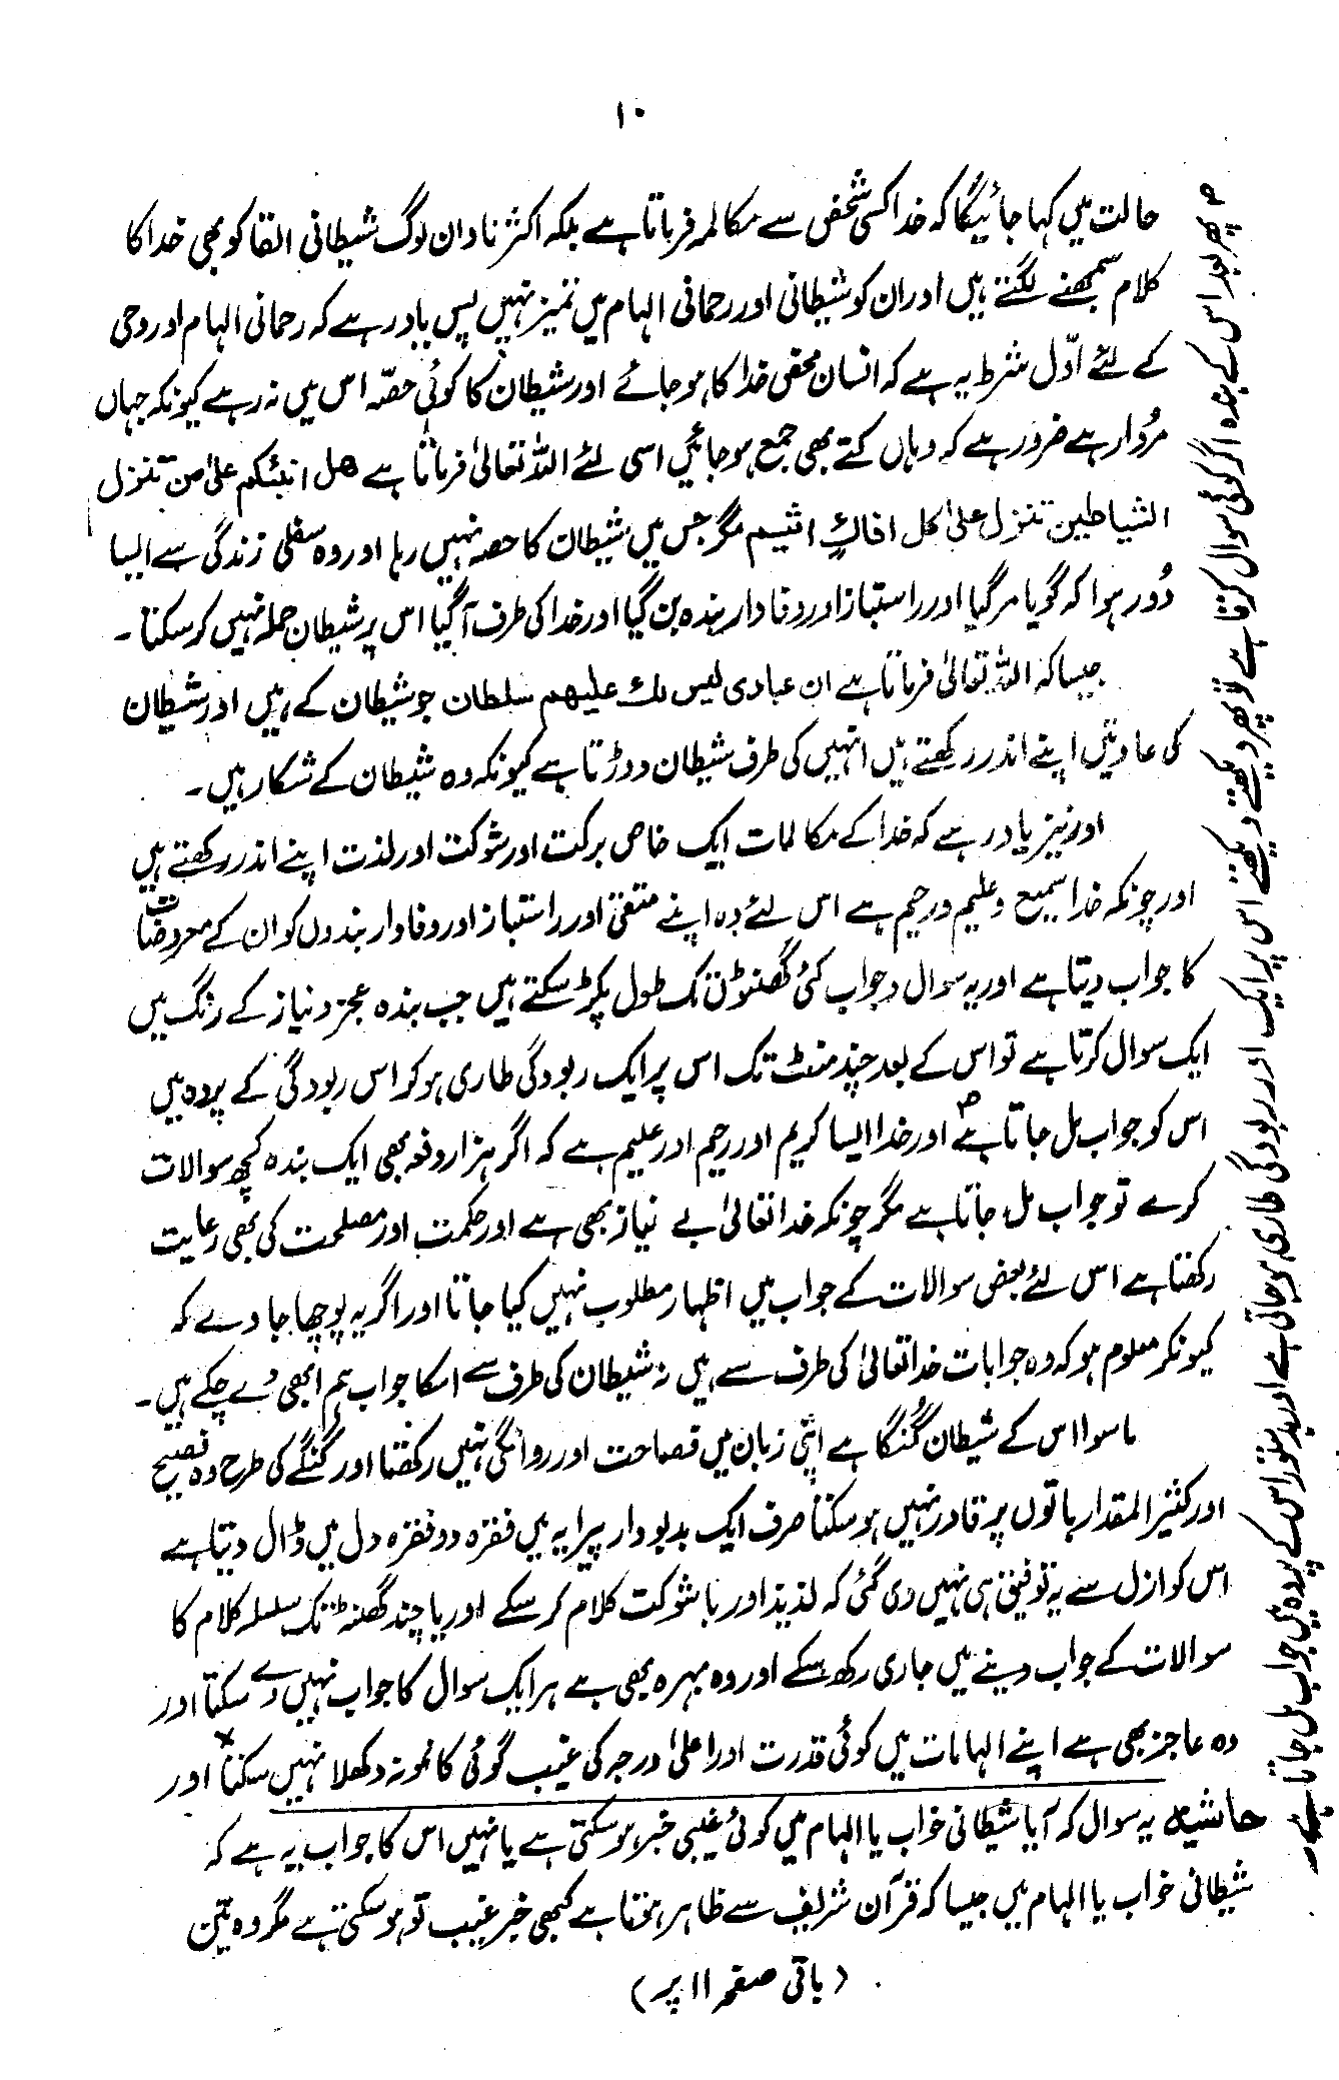 ۱۰
حالت میں کہا جائیگا کہ خدا کسی شخص سے مکالمہ فرماتا ہے بلکہ اکثر نادان لوگ شیطانی القا کو بھی خدا کا
کلام سمجھنے لگتے ہیں اور ان کو شیطانی اور رحمانی الہام میں تمیز نہیں پس یاد رہے کہ رحمانی الہام اور وحی
کے لئے اوّل شرط یہ ہے کہ انسان محض خدا کا ہو جائے اور شیطان کا کوئی حصّہ اس میں نہ رہے کیونکہ جہاں
مُردار ہے ضرور ہے کہ وہاں کتے بھی جمع ہو جائیں اسی لئے اللہ تعالیٰ فرماتا ہے ھل انبئکم علیٰ من تنزل
الشیاطین تنزل علیٰ کل افاکٍ اثیم مگر جس میں شیطان کا حصہ نہیں رہا اور وہ سفلی زندگی سے ایسا
دُور ہوا کہ گویا مر گیا اور راستباز اور وفادار بندہ بن گیا اور خدا کی طرف آ گیا اس پر شیطان حملہ نہیں کر سکتا۔
جیسا کہ اللہ تعالیٰ فرماتا ہے ان عبادی لیس لك علیھم سلطان جو شیطان کے ہیں اور شیطان
کی عادتیں اپنے اندر رکھتے ہیں انہیں کی طرف شیطان دوڑتا ہے کیونکہ وہ شیطان کے شکار ہیں۔
اور نیز یاد رہے کہ خدا کے مکالمات ایک خاص برکت اور شوکت اور لذت اپنے اندر رکھتے ہیں
اور چونکہ خدا سمیع و علیم و رحیم ہے اس لئے وہ اپنے متقی اور راستباز اور وفادار بندوں کو ان کے معروضات
کا جواب دیتا ہے اور یہ سوال و جواب کئی گھنٹوں تک طول پکڑ سکتے ہیں جب بندہ عجز و نیاز کے رنگ میں
ایک سوال کرتا ہے تو اس کے بعد چند منٹ تک اس پر ایک ربودگی طاری ہو کر اس ربودگی کے پردہ میں
اس کو جواب مل جاتا ہے؏ اور خدا ایسا کریم اور رحیم اور علیم ہے کہ اگر ہزار دفعہ بھی ایک بندہ کچھ سوالات
کرے تو جواب مل جاتا ہے مگر چونکہ خدا تعالیٰ بے نیاز بھی ہے اور حکمت اور مصلحت کی بھی رعایت
رکھتا ہے اس لئے بعض سوالات کے جواب میں اظہار مطلوب نہیں کیا جاتا اور اگر یہ پوچھا جاوے کہ
کیونکر معلوم ہو کہ وہ جوابات خدا تعالیٰ کی طرف سے ہیں نہ شیطان کی طرف سے اسکا جواب ہم ابھی دے چکے ہیں۔
ماسوا اس کے شیطان گُنگا ہے اپنی زبان میں فصاحت اور روانگی نہیں رکھتا اور گنگے کی طرح وہ فصیح
اور کثیر المقدار باتوں پر قادر نہیں ہو سکتا صرف ایک بدبودار پیرایہ میں فقرہ دو فقرہ دل میں ڈال دیتا ہے
اس کو ازل سے یہ توفیق ہی نہیں دی گئی کہ لذیذ اور باشوکت کلام کر سکے اور یا چند گھنٹہ تک سلسلہ کلام کا
سوالات کے جواب دینے میں جاری رکھ سکے اور وہ بہرہ بھی ہے ہر ایک سوال کا جواب نہیں دے سکتا اور
وہ عاجز بھی ہے اپنے الہامات میں کوئی قدرت اور اعلیٰ درجہ کی غیب گوئی کا نمونہ دکھلا نہیں سکتا× اور
حاشیہ یہ سوال کہ آیا شیطانی خواب یا الہام میں کوئی غیبی خبر ہو سکتی ہے یا نہیں اس کا جواب یہ ہے کہ
شیطانی خواب یا الہام میں جیسا کہ قرآن شریف سے ظاہر ہوتا ہے کبھی خبر غیب تو ہو سکتی ہے مگر وہ تین
(باقی صفحہ ۱۱ پر)
؏ پھر بعد اس کے بندہ اگر کوئی سوال کرتا ہے تو پھر دیکھتے دیکھتے اس پر ایک اور ربودگی طاری ہو جاتی ہے اور بدستور اس کے پردہ میں جواب مل جاتا ہے